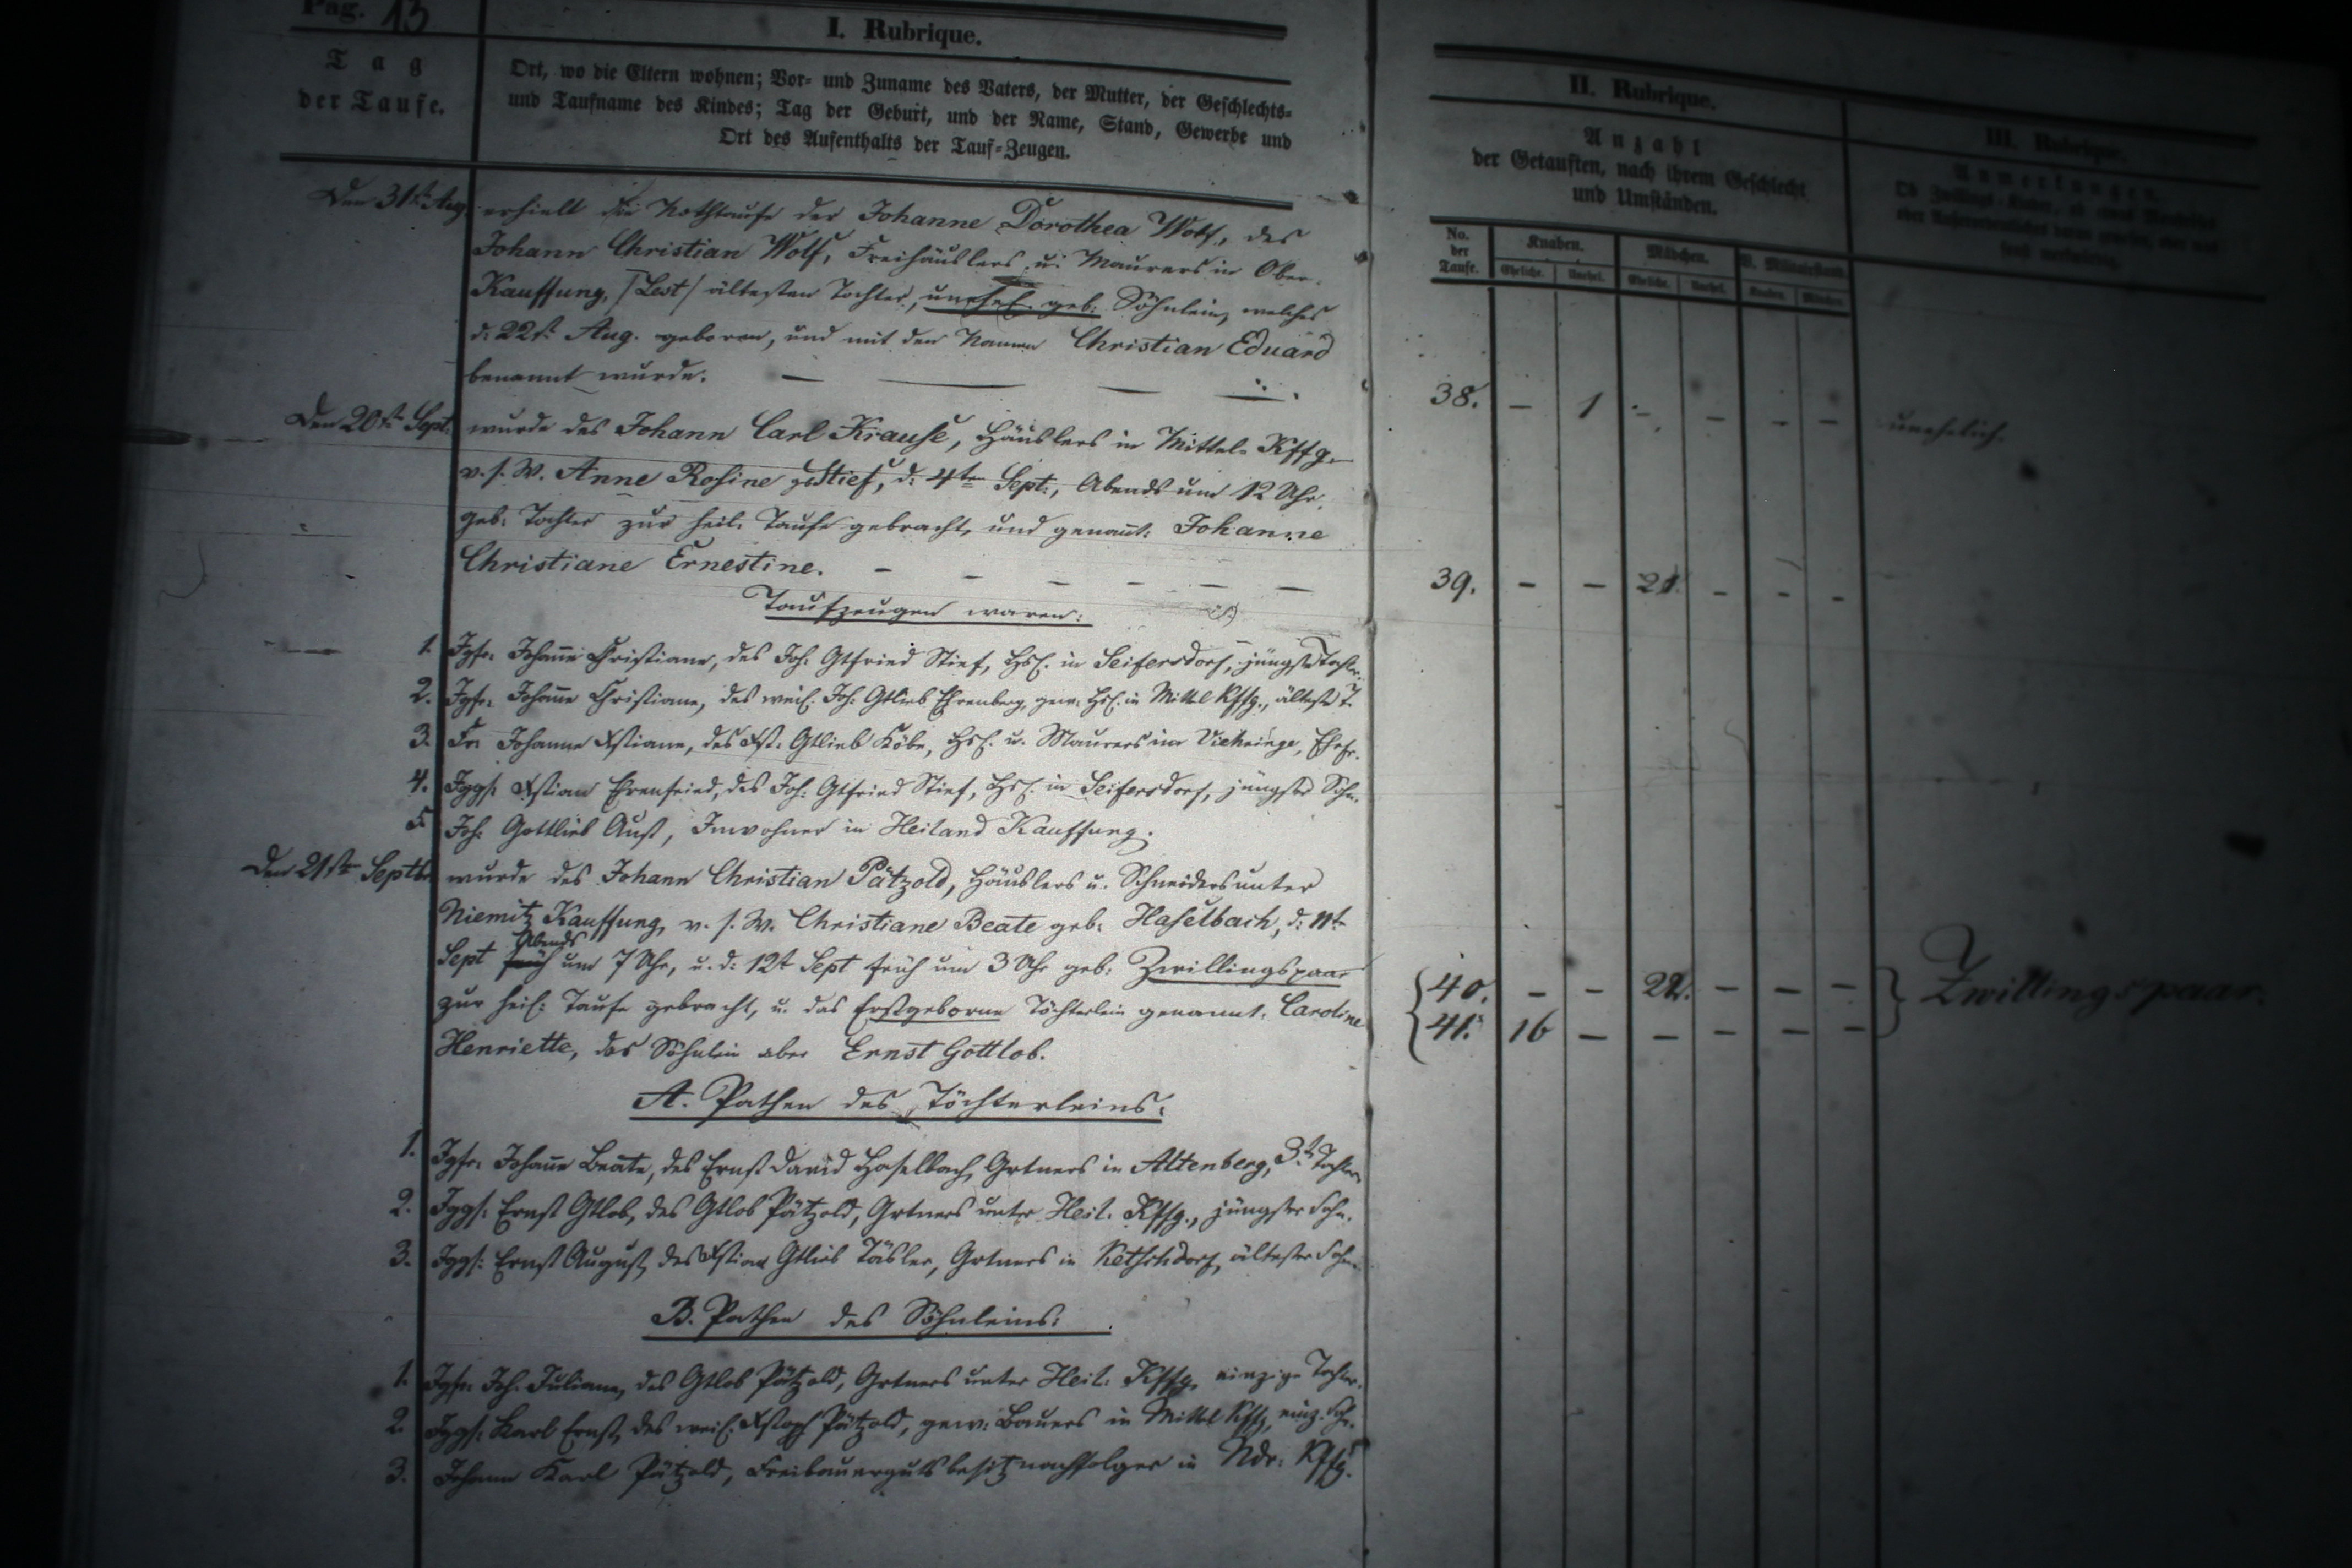 Pag. 13
I. Rubrique.
Tag
der Taufe.
Ort, wo die Eltern wohnen; Vor- und Zuname des Vaters, der Mutter, der Geschlechts-
und Taufname des Kindes; Tag der Geburt, und der Name, Stand, Gewerbe und
Ort des Aufenthalts der Tauf-Zeugen.
Den 31st Aug. erhielt die Nothtaufe der Johanne Dorothea Wolf, des
Johann Christian Wolf, Freihäuslers u. Maurers in Ober-
Kauffung, /Lest/ ältesten Tochter, unehel. geb. Söhnlein, welches
d. 22st Aug. geboren, und mit den Namen Christian Eduard
benannt wurde.
Den 20st Sept. wurde des Johann Carl Krause, Häuslers in Mittel-Kffg.
v. s. W. Anne Rosine g. Stief, d. 4ten Sept., Abends um 12 Uhr,
geb. Tochter zur heil. Taufe gebracht, und genañt: Johanne
Christiane Ernestine.
Taufzeugen waren:
1. Jgfr. Johañe Christiane, des Joh. Gtfried Stief, Hsl. in Seifersdorf, jüngste Tochter.
2. Jgfr. Johañe Christiane, des weil. Joh. Gtlieb Ehrenberg, gew. Hsl. in Mittel Kffg., älteste T.
3. Fr. Johanne Xstiane, des Xst. Gtlieb Köbe, Hsl. u. Maurers im Viehringe, Ehefr.
4. Jggs. Xstian Ehrenfried, des Joh. Gtfried Stief, Hsl. in Seifersdorf, jüngster Sohn.
5. Joh. Gottlieb Aust, Inwohner in Heiland Kauffung.
Den 21sten Septbr. wurde des Johann Christian Pätzold, Häuslers u. Schneiders unter
Niemitz Kauffung, v. s. W. Christiane Beate geb. Haselbach, d. 11t
Sept früh Abends um 7 Uhr, u. d. 12t Sept früh um 3 Uhr geb. Zwillingspaar
zur heil. Taufe gebracht, u. das Erstgeborne Töchterlein genannt: Caroline
Henriette, das Söhnlein aber Ernst Gottlob.
A. Pathen des Töchterleins:
1. Jgfr. Johañe Beate, des Ernst David Haselbach, Grtners in Altenberg, 3t Tochter
2. Jggs. Ernst Gtlob, des Gtlob Pätzold, Grtners unter Heil. Kffg., jüngster Sohn.
3. Jggs. Ernst August, des Xstian Gtlieb Täsler, Grtners in Ketschdorf, ältester Sohn.
B. Pathen des Söhnleins:
1. Jgfr. Joh. Juliane, des Gtlob Pätzold, Grtners unter Heil. Kffg. einzige Tochter.
2. Jggs. Karl Ernst, des weil. Xstoph Pätzold, gew. Bauers in Mittel Kffg, einz. Sohn.
3. Johann Karl Pätzold, Freibauergutsbesitznachfolger in Ndr. Kffg.
II. Rubrique.
Anzahl
der Getauften, nach ihrem Geschlecht
und Umständen.
No. der Taufe. Knaben. Mädchen. V. Militairstand.
Eheliche. Unehel. Eheliche. Unehel. Knaben. Mädchen.
38. – 1 – – – –
39. – – 21. – – –
40. – – 22. – – –
41. 16 – – – – –
III. Rubrique.
Anmerkungen.
unehelich.
Zwillingspaar.